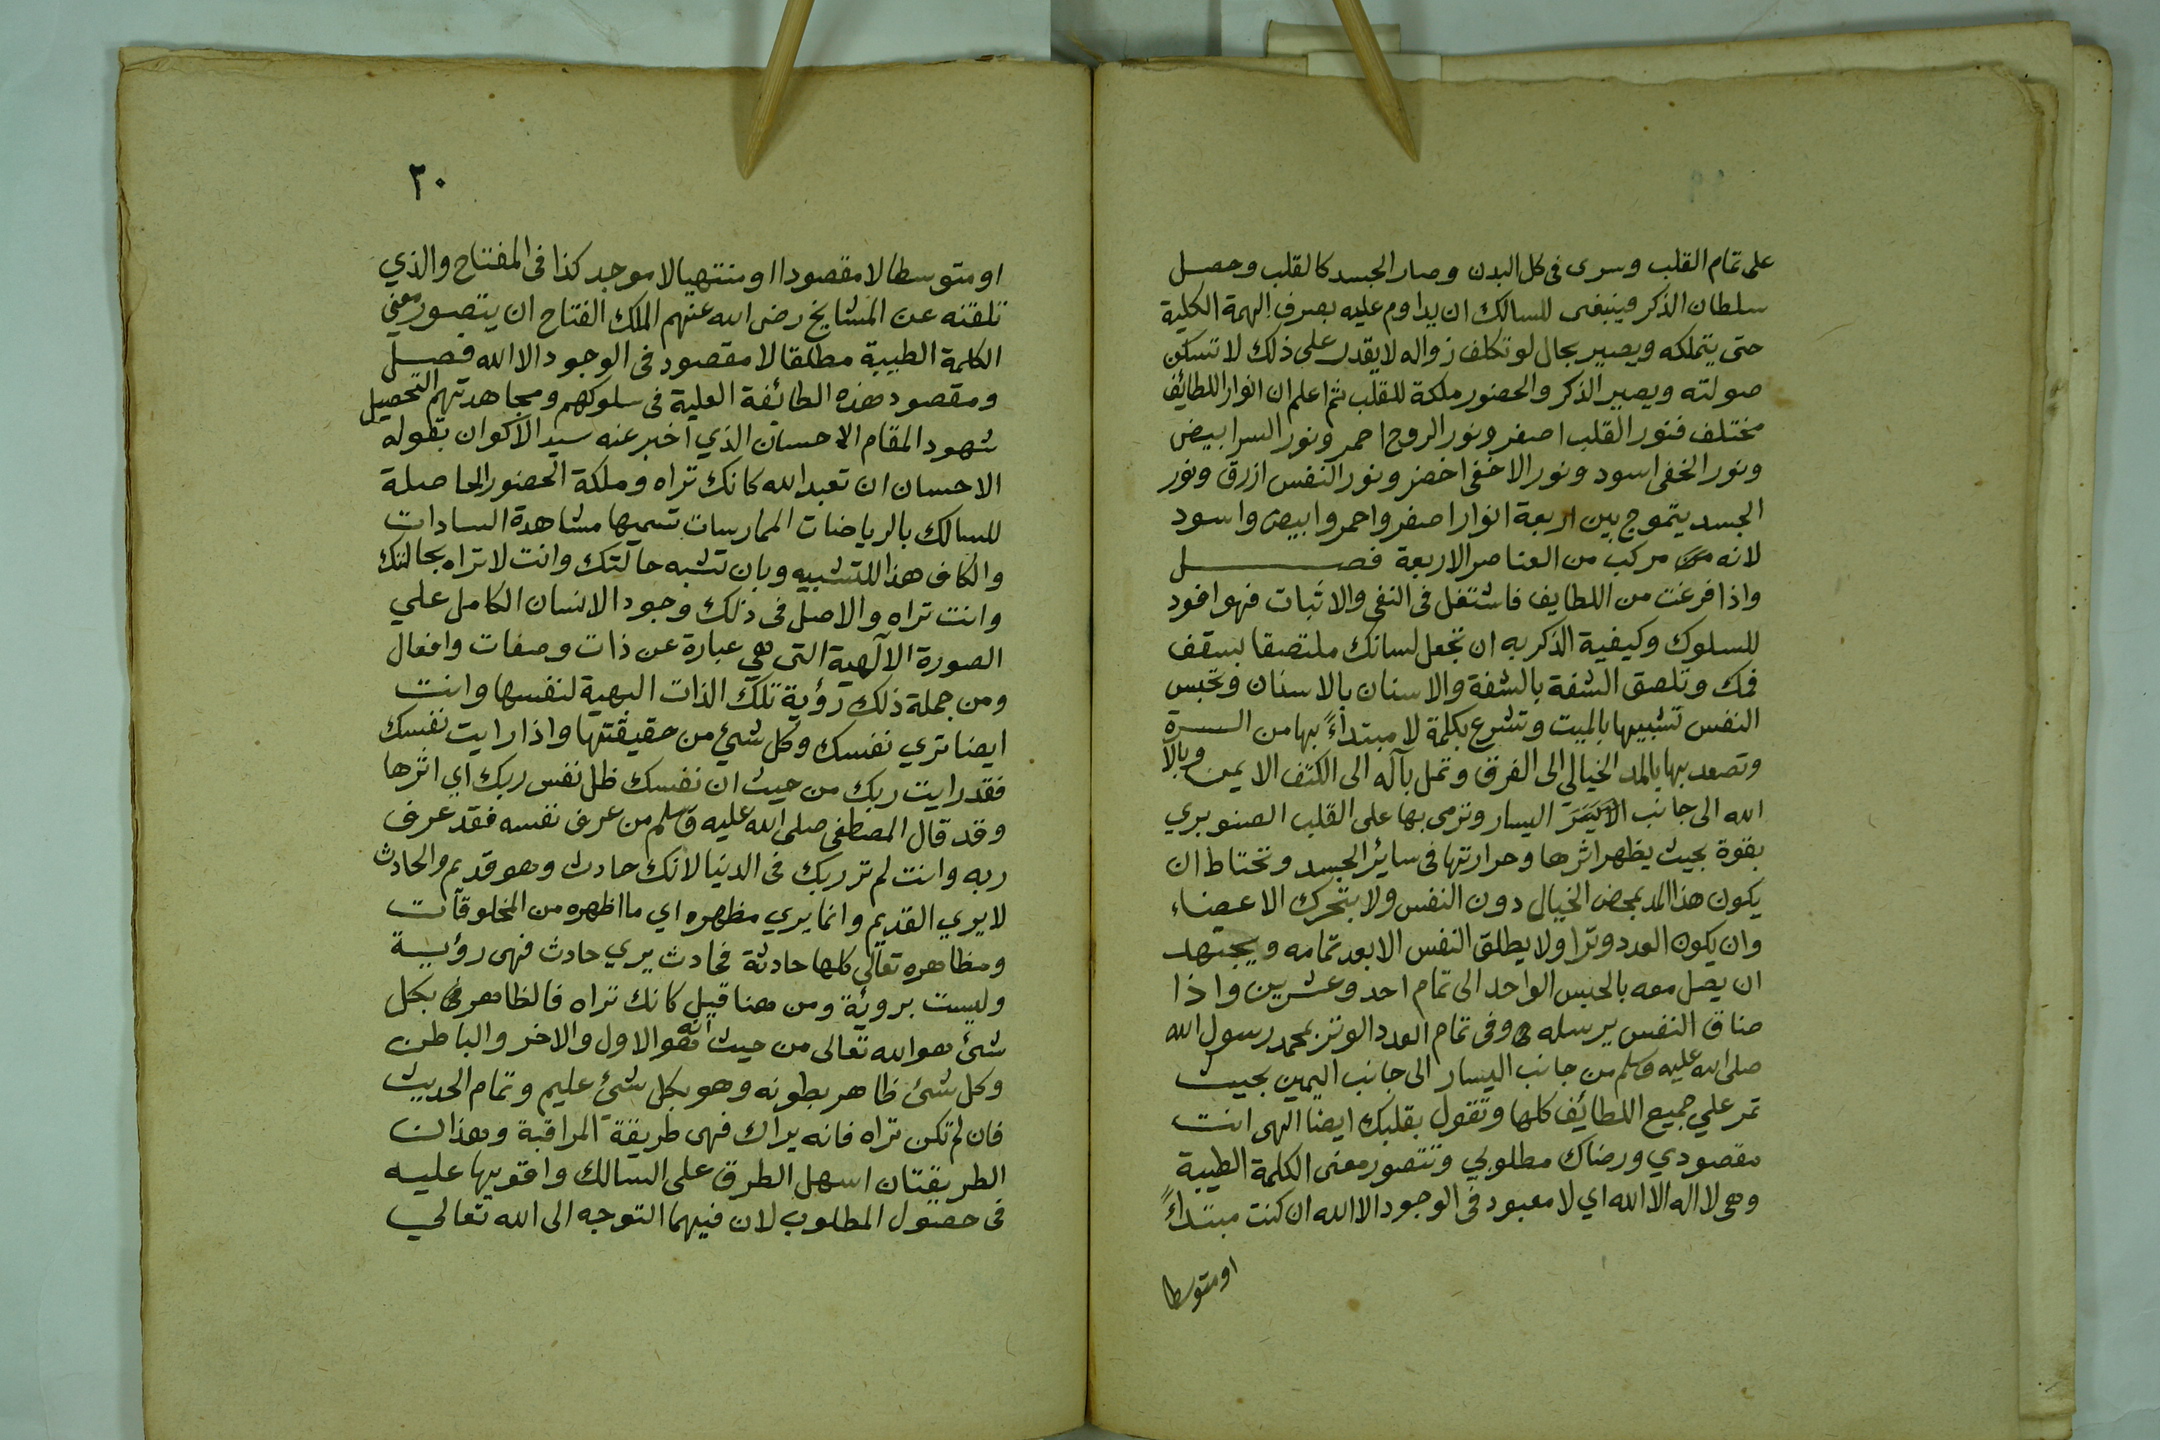 على تمام القلب وسرى فى كل البدن وصار الجسد كالقلب وحصل
سلطان الذكر فينبغى للسالك ان يداوم عليه بصرف الهمة الكلية
حتى يتملكه ويصير بحال لو تكلف زواله لا يقدر على ذلك لا تسكن
صولته ويصير الذكر والحضور ملكة للقلب ثم اعلم ان انوار اللطائف
مختلف فنور القلب اصفر ونور الروح احمر ونور السر ابيض
ونور الخفى اسود ونور الاخفى اخضر ونور النفس ازرق ونور
الجسد يتموج بين اربعة انوار اصفر واحمر وابيض واسود
لانه مركب من العناصر الاربعة فصل
واذا فرغت من اللطايف فاشتغل فى النفى والاثبات فهو افود
للسلوك وكيفية الذكر به ان تجعل لسانك ملتصقا بسقف
فمك وتلصق الشفة بالشفة والاسنان بالاسنان وتحبس
النفس تشبيها بالميت وتشرع بكلمة لا مبتداءً بها من السرة
وتصعد بها بالمد الخيالي الى الفرق وتمل بآله الى الكتف الايمن وبالا
الله الى جانب اليسار وترمى بها على القلب الصنوبري
بقوة بحيث يظهر اثرها وحرارتها فى سائر الجسد وتحتاط ان
يكون هذا المد بمحض الخيال دون النفس ولا يتحرك الاعضاء
وان يكون العدد وترا ولا يطلق النفس الا بعد تمامه ويجتهد
ان يصل معه بالحبس الواحد الى تمام احد وعشرين واذا
ضاق النفس يرسله وفى تمام العدد الوتر بمحمد رسول الله
صلى الله عليه وسلم من جانب اليسار الى جانب اليمين بحيث
تمر علي جميع اللطائف كلها وتقول بقلبك ايضا الهى انت
مقصودي ورضاك مطلوبي وتتصور معنى الكلمة الطيبة
وهى لا اله الا الله اي لا معبود فى الوجود الا الله ان كنت مبتداءً
او متوسطا
٢٠
او متوسطا لا مقصودا او منتهيا لا موجد كذا فى المفتاح والذي
تلقته عن المشايخ رضى الله عنهم الملك الفتاح ان يتصور معني
الكلمة الطيبة مطلقا لا مقصود فى الوجود الا الله فصل
ومقصود هذه الطائفة العلية فى سلوكهم ومجاهدتهم التحصيل
شهود المقام الاحسان الذي اخبر عنه سيد الاكوان بقوله
الاحسان ان تعبد الله كانك تراه وملكة الحضور الحاصلة
للسالك بالرياضات الممارسات تسميها مشاهدة السادات
والكاف هذا للتشبيه وبان تشبه حالتك وانت لا تراه بحالتك
وانت تراه والاصل فى ذلك وجود الانسان الكامل علي
الصورة الآلهية التى هي عبارة عن ذات وصفات وافعال
ومن جملة ذلك رؤية تلك الذات البهية لنفسها وانت
ايضا تري نفسك وكل شيء من حقيقتها واذا رايت نفسك
فقد رايت ربك من حيث ان نفسك ظل نفس ربك اي اثرها
وقد قال المصطفى صلى الله عليه وسلم من عرف نفسه فقد عرف
ربه وانت لم تر ربك فى الدنيا لانك حادث وهو قديم والحادث
لا يري القديم وانما يري مظهره اي ما اظهره من المخلوقات
ومظاهره تعالى كلها حادثة فحادث يري حادث فهى رؤية
وليست بروئة ومن هنا قيل كانك تراه فالظاهر بكل
شئ هو الله تعالى من حيث انه هو الاول والاخر والباطن
وكل شئ ظاهر بطونه وهو بكل شئ عليم وتمام الحديث
فان لم تكن تراه فانه يراك فهى طريقة المراقبة وهذان
الطريقتان اسهل الطرق على السالك واقويها عليه
فى حصول المطلوب لان فيهما التوجه الى الله تعالي